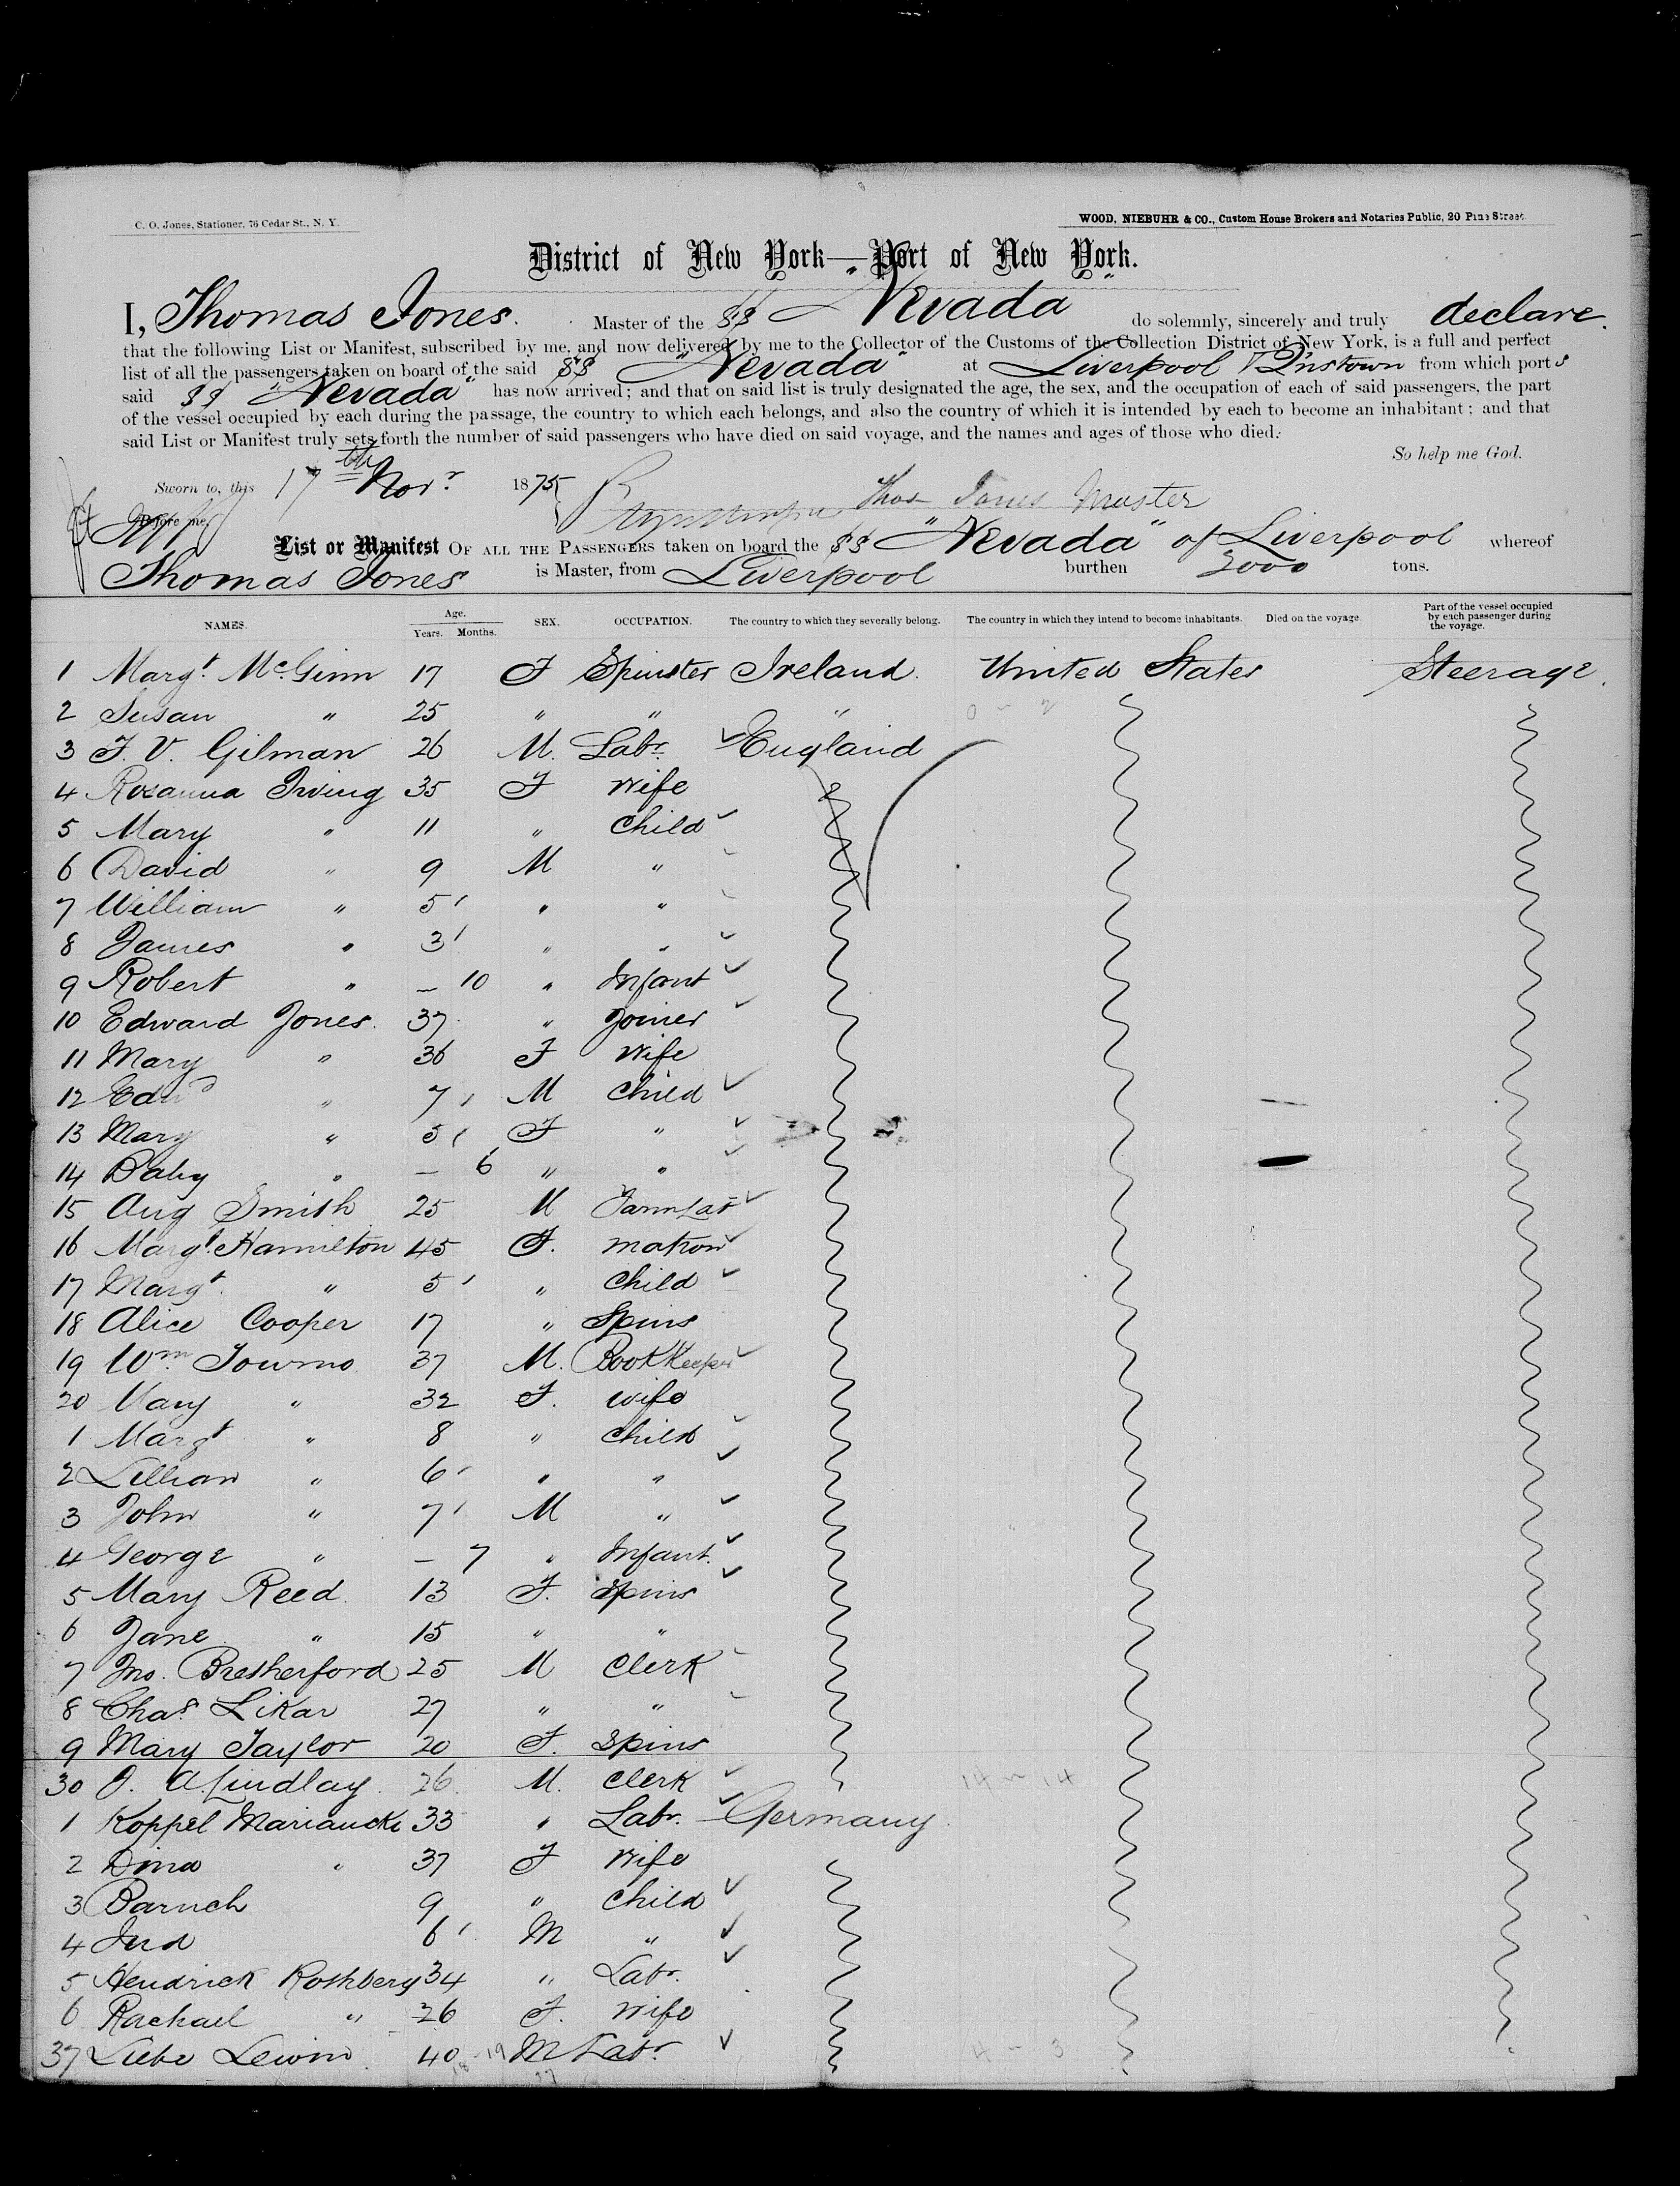 C. O. Jones, Stationer, 76 Cedar St., N. Y.
WOOD, NIEBUHR & CO., Custom House Brokers and Notaries Public, 20 Pine Street.
District of New York—Port of New York.
I, Thomas Jones. Master of the SS "Nevada" do solemnly, sincerely and truly declare.
that the following List or Manifest, subscribed by me, and now delivered by me to the Collector of the Customs of the Collection District of New York, is a full and perfect
list of all the passengers taken on board of the said SS "Nevada" at Liverpool & Qnstown from which ports
said SS "Nevada" has now arrived; and that on said list is truly designated the age, the sex, and the occupation of each of said passengers, the part
of the vessel occupied by each during the passage, the country to which each belongs, and also the country of which it is intended by each to become an inhabitant; and that
said List or Manifest truly sets forth the number of said passengers who have died on said voyage, and the names and ages of those who died.
So help me God.
Sworn to, this 17th Novr. 1875
Thos Jones Master
Before me,
List or Manifest OF ALL THE PASSENGERS taken on board the SS "Nevada" of Liverpool whereof
Thomas Jones is Master, from Liverpool burthen 3000 tons.
NAMES. Age. Years. Months. SEX. OCCUPATION. The country to which they severally belong. The country in which they intend to become inhabitants. Died on the voyage. Part of the vessel occupied by each passenger during the voyage.
1 Margt. McGinn 17 F Spinster Ireland. United States Steerage.
2 Susan " 25 " " "
3 F. V. Gilman 26 M. Labr. England
4 Rosanna Irving 35 F Wife
5 Mary " 11 " Child
6 David " 9 M "
7 William " 5 " "
8 James " 3 " "
9 Robert " — 10 " Infant
10 Edward Jones. 37 " Joiner
11 Mary " 36 F Wife
12 Edwd " 7 M Child
13 Mary " 5 F "
14 Baby " — 6 " "
15 Aug Smith 25 M Farm Lab
16 Margt. Hamilton 45 F. Matron
17 Margt. " 5 " Child
18 Alice Cooper 17 " Spins
19 Wm. 37 M. BookKeeper
20 Mary " 32 F. Wife
1 Margt " 8 " Child
2 Lillian " 6 " "
3 John " 7 M "
4 George " — 7 " Infant.
5 Mary Reed. 13 F. Spins
6 Jane " 15 " "
7 Jno. Bretherford 25 M Clerk
8 Chas Likar 27 " "
9 Mary Taylor 20 F. Spins
30 J. A. Lindlay 26 M. Clerk
1 Koppel 33 " Labr. Germany
2 Dina " 37 F Wife
3 Baruch 9 " Child
4 6 M "
5 Hendrick Rothberg 34 " Labr.
6 Rachael " 26 F. Wife
37 Liebe Lewin 40 M Labr.